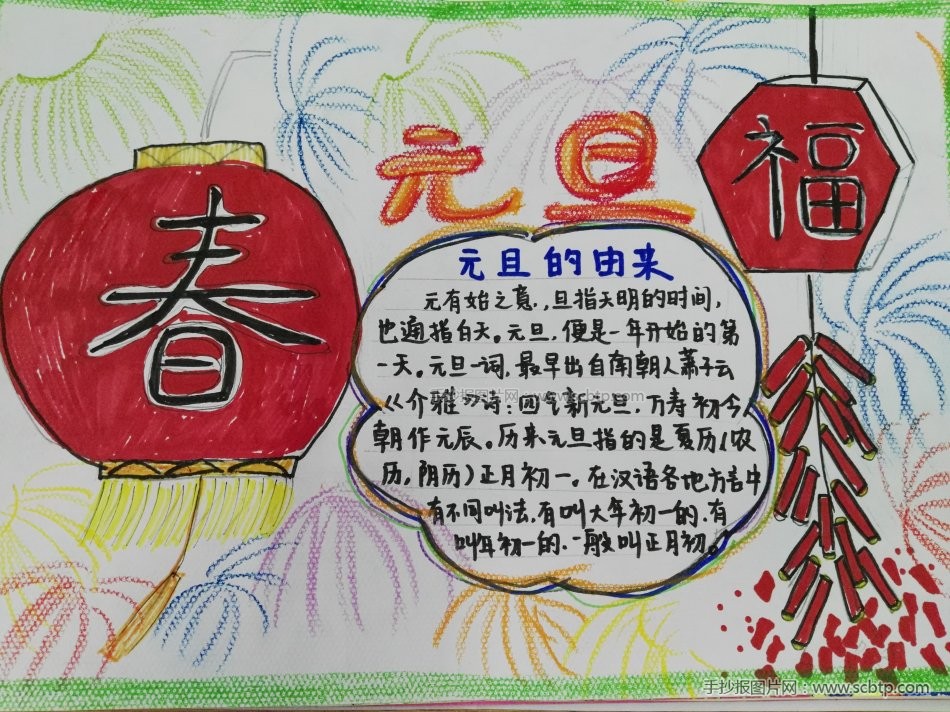 元旦
福
春
元旦的由来
元有始之意,旦指天明的时间,
也通指白天。元旦,便是一年开始的第
一天。元旦一词,最早出自南朝人萧子云
《介雅》诗:四气新元旦,万寿初今
朝作元辰。历来元旦指的是夏历(农
历,阴历)正月初一。在汉语各地方言中
有不同叫法,有叫大年初一的,有
叫年初一的,一般叫正月初。
手抄报图片网 www.scbtp.com
手抄报图片网:www.scbtp.com